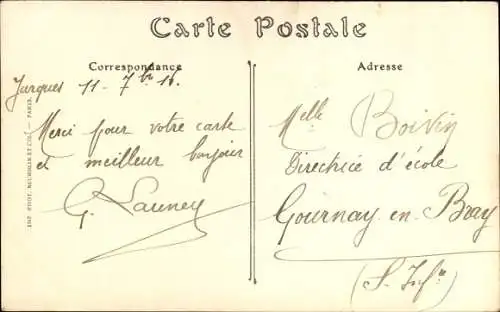 Carte Postale
Correspondance
Jurques 11-7bre 16.
Merci pour votre carte
et meilleur bonjour
G. Launey
Adresse
Melle Boivin
Directrice d'école
Gournay-en-Bray
(S. Infre)
IMP. PHOT. NEURDEIN ET CIE. — PARIS